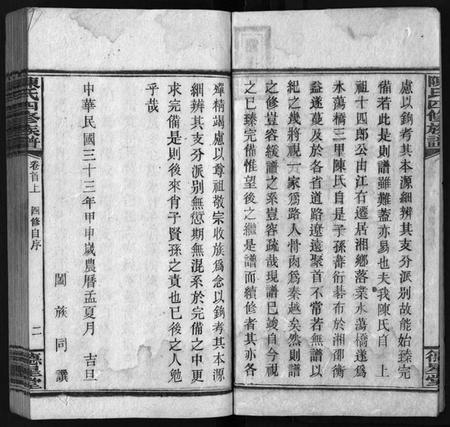 慮以鈎考其本源細辨其支分派別故能始臻完
備若此是則譜雖難蓋亦易也夫我陳氏自上
祖十四郎公由江右遷居湘鄉落業永蕩橋遂爲
永蕩橋三甲陳氏自是子孫蕃衍碁布於湘邵衡
益遂蔓及於各省道路遼遠聚首不常若無譜以
紀之幾將視一家爲路人骨肉爲秦越矣然則譜
之修豈容緩譜之系豈容疏哉現譜已竣自今視
之已臻完備惟望後之繼是譜而續修者其亦各
殫精竭慮以尊祖敬宗收族爲念以鈎考其本源
細辨其支分派別無愆期無混系於完備之中更
求完備是則後來肖子賢孫之責也已後之人勉
乎哉
中華民國三十三年甲申歲農曆孟夏月 吉旦
闔族同譔
陳氏四修族譜
卷首上 四修自序
二
德星堂